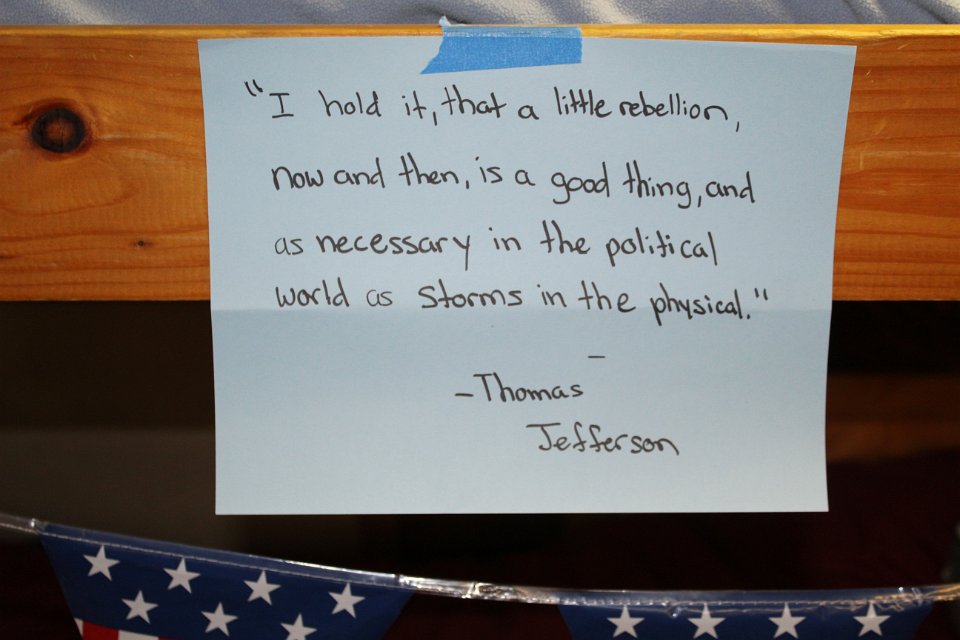 "I hold it, that a little rebellion,
now and then, is a good thing, and
as necessary in the political
world as storms in the physical."
–
–Thomas
Jefferson